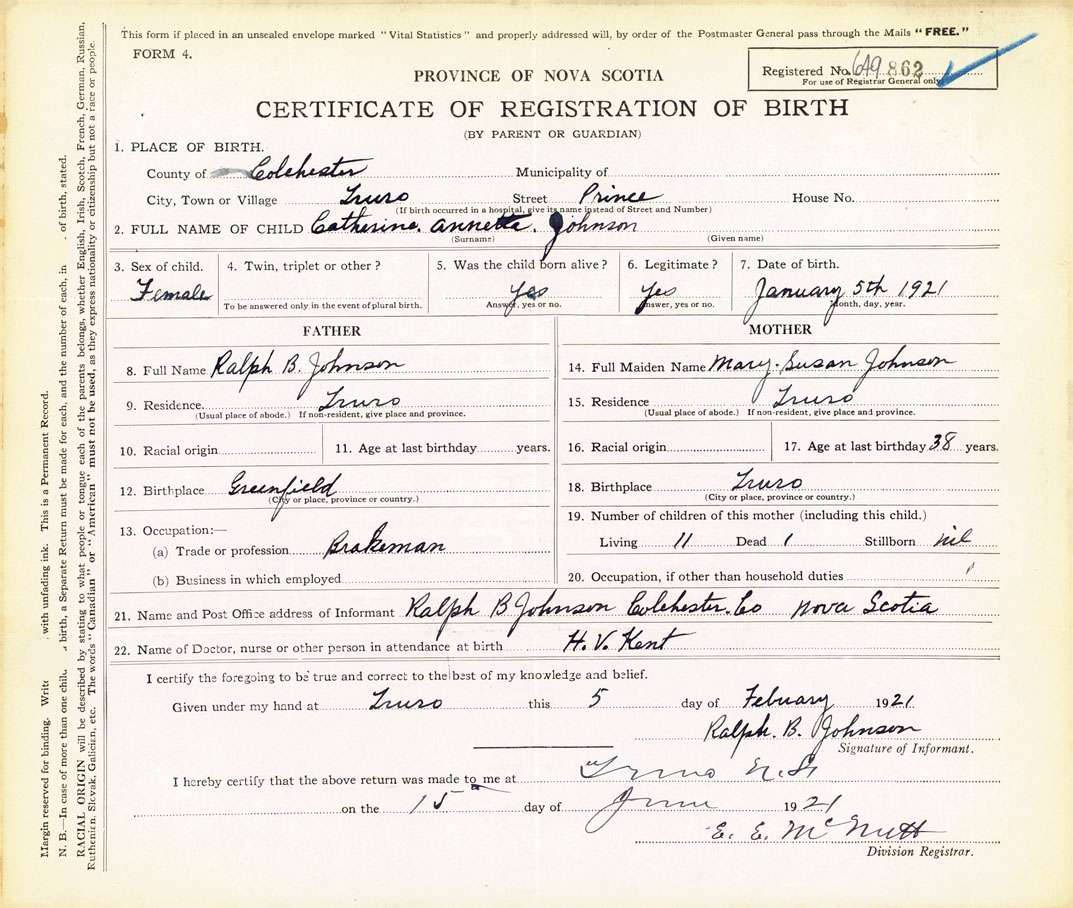 This form if placed in an unsealed envelope marked "Vital Statistics" and properly addressed will, by order of the Postmaster General pass through the Mails "FREE."
FORM 4.
PROVINCE OF NOVA SCOTIA
Registered No. 649862
For use of Registrar General only
CERTIFICATE OF REGISTRATION OF BIRTH
(BY PARENT OR GUARDIAN)
1. PLACE OF BIRTH.
County of Colchester Municipality of
City, Town or Village Truro Street Prince House No.
(If birth occurred in a hospital, give its name instead of Street and Number)
2. FULL NAME OF CHILD Catherine. Annetta. Johnson
(Surname) (Given name)
3. Sex of child. 4. Twin, triplet or other? 5. Was the child born alive? 6. Legitimate? 7. Date of birth.
Female Yes Yes January 5th 1921
To be answered only in the event of plural birth. Answer, yes or no. Answer, yes or no. Month, day, year.
FATHER
8. Full Name Ralph B. Johnson
9. Residence. Truro
(Usual place of abode.) If non-resident, give place and province.
10. Racial origin 11. Age at last birthday years.
12. Birthplace Greenfield
(City or place, province or country.)
13. Occupation:—
(a) Trade or profession Brakeman
(b) Business in which employed
MOTHER
14. Full Maiden Name Mary. Susan Johnson
15. Residence Truro
(Usual place of abode.) If non-resident, give place and province.
16. Racial origin 17. Age at last birthday 38 years.
18. Birthplace Truro
(City or place, province or country.)
19. Number of children of this mother (including this child.)
Living 11 Dead 1 Stillborn nil
20. Occupation, if other than household duties
21. Name and Post Office address of Informant Ralph B Johnson Colchester. Co Nova Scotia
22. Name of Doctor, nurse or other person in attendance at birth H. V. Kent
I certify the foregoing to be true and correct to the best of my knowledge and belief.
Given under my hand at Truro this 5 day of Febuary 1921
Ralph. B. Johnson
Signature of Informant.
I hereby certify that the above return was made to me at Truro N.S.
on the 15 day of June 1921
E. E. McNutt
Division Registrar.
Margin reserved for binding. Write with unfading ink. This is a Permanent Record.
N. B.—In case of more than one child birth, a Separate Return must be made for each, and the number of each, in of birth, stated.
RACIAL ORIGIN will be described by stating to what people or tongue each of the parents belongs, whether English, Irish, Scotch, French, German, Russian,
Ruthenian, Slovak, Galician, etc. The words "Canadian" or "American" must not be used, as they express nationality or citizenship but not a race or people.